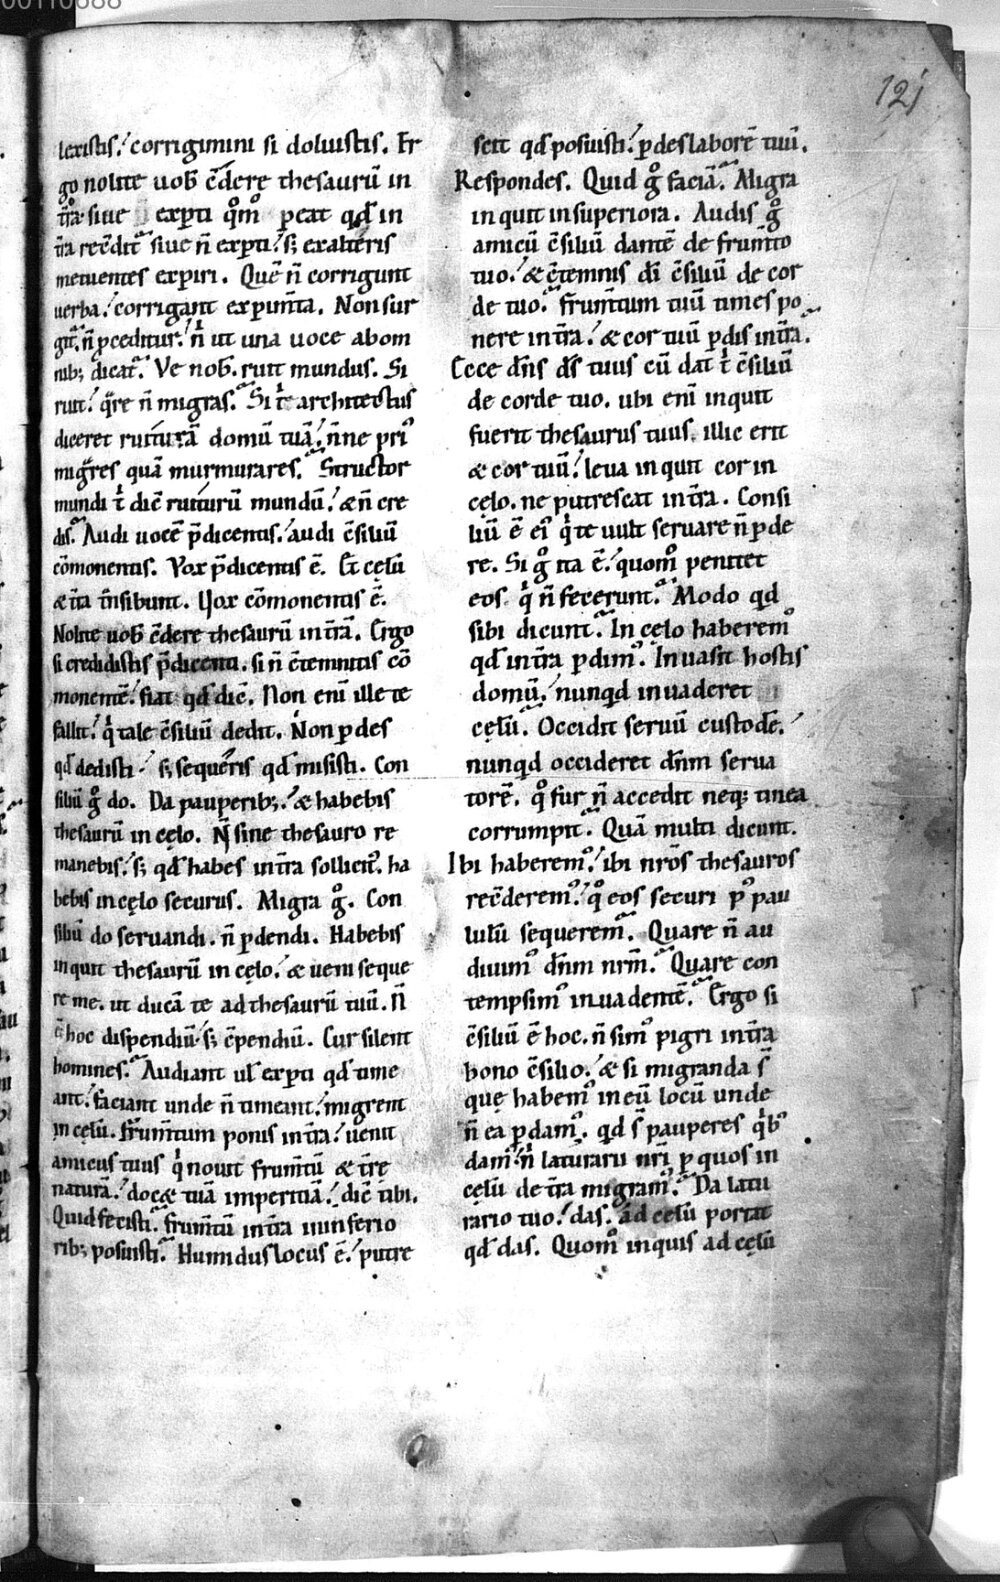 00110688
121
lexistis. corrigimini si doluistis. Er
go nolite uob c̄dere thesaurū in
t̄ra. siue experti qͦm̄ peat qd̓ in
t̄ra rec̄dit. siue n̄ experti. s; exalteris
metuentes experiri. Quē n̄ corrigunt
uerba. corrigant experim̄ta. Non sur
git. n̄ p̄ceditur. n̄ ut una uoce ab om
nib; dicat̓. Ve nob̄. ruit mundus. Si
ruit. qͣre n̄ migras. Si tͥ architectus
diceret ruiturā domū tuā. n̄ne priꝰ
migͣres quā murmurares. Structor
mundi tͥ dic̄ ruiturū mundū. & n̄ cre
dis. Audi uocē p̄dicentis. audi c̄siliū
cōmonentis. Vox p̄dicentis ē. Et cęlū
& t̄ra tn̄sibunt. Vox cōmonentis ē.
Nolite uob c̄dere thesaurū in t̄ra. Ergo
si credidistis p̄dicenti. si n̄ c̄temnitis cō
monentē. fiat qd̓ dic̄. Non eni ille te
fallit. qͥ tale c̄siliū dedit. Non ꝑdes
qd̓ dedisti. s; sequeris qd̓ misisti. Con
siliū gͦ do. Da pauperib;. & habebis
thesaurū in cęlo. N̄ sine thesauro re
manebis. s; qd̓ habes in t̄ra sollicitꝰ. ha
bebis in cęlo securus. Migra gͦ. Con
siliū do seruandi. n̄ ꝑdendi. Habebis
inquit thesaurū in cęlo. & ueni seque
re me. ut ducā te ad thesaurū tuū. N̄
ē hoc dispendiū. s; c̄pendiū. Cur silent
homines. Audiant ul̓ experti qd̓ time
ant. faciant unde n̄ timeant. migrent
in cęlū. frum̄tum ponis in t̄ra. uenit
amicus tuus qͥ nouit frum̄tū & t̄rę
naturā. doc& tuā imperitiā. dic̄ tibi.
Quid fecisti. frum̄tū in t̄ra in inferio
rib; posuisti. Humidus locus ē. putre
scit qd̓ posuisti. ꝑdes laborē tuū.
Respondes. Quid gͦ faciā. Migra
inquit in superiora. Audis gͦ
amicū c̄siliū dantē de frum̄to
tuo. & c̄temnis dī c̄siliū de cor
de tuo. frum̄tum tuū times po
nere in t̄ra. & cor tuū ꝑdis in t̄ra.
Ecce dn̄s ds̄ tuus cū dat tͥ c̄siliū
de corde tuo. ubi eni inquit
fuerit thesaurus tuus. illic erit
& cor tuū. leua inquit cor in
cęlo. ne putrescat in t̄ra. Consi
liū ē eiꝰ qͥ te uult seruare n̄ ꝑde
re. Si gͦ ita ē. quom̊ penitet
eos qͥ n̄ fecerunt. Modo qd̓
sibi dicunt. In cęlo haberemꝰ
qd̓ in t̄ra ꝑdimꝰ. Inuasit hostis
domū. nunqd̓ inuaderet
cęlū. Occidit seruū custodē.
nunqd̓ occideret dn̄m serua
torē. qͦ fur n̄ accedit neq; tinea
corrumpit. Quā multi dicunt.
Ibi haberemꝰ. ibi nr̄os thesauros
rec̄deremꝰ. qͦ eos securi pꝰ pau
lulū sequeremꝰ. Quare n̄ au
diuimꝰ dn̄m nrm̄. Quare con
tempsimꝰ inuadentē. Ergo si
c̄siliū ē hoc. n̄ simꝰ pigri in t̄ra
bono c̄silio. & si migranda s̄
quę habemꝰ in eū locū unde
n̄ ea ꝑdamꝰ. qd̓ s̄ pauperes qͥbꝰ
damꝰ. n̄ laturarii nr̄i ꝑ quos in
cęlū de t̄ra migramꝰ. Da latu
rario tuo. das. ad cęlū portat
qd̓ das. Quom̊ inquis ad cęlū